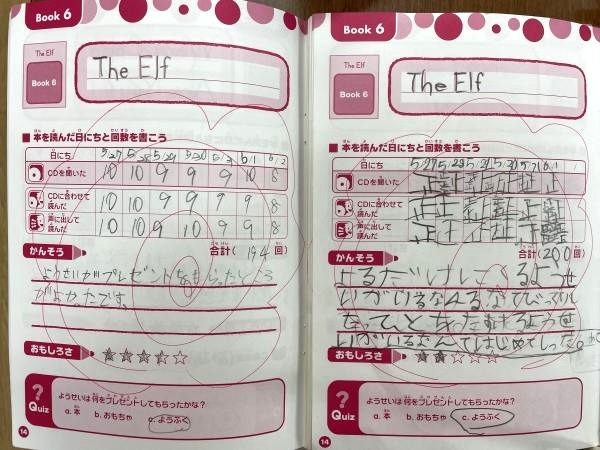 Book 6
The Elf
Book 6
The Elf
■ 本を読んだ日にちと回数を書こう
日にち 5/27 5/28 5/29 5/30 5/31 6/1 6/2
CDを聞いた 10 10 9 9 9 10 8
CDに合わせて読んだ 10 10 9 9 9 9 8
声に出して読んだ 10 10 9 9 9 9 8
かんそう 合計( 194 回)
ようせいがプレゼントをもらったところ
がよかったです。
おもしろさ
? Quiz
ようせいは何をプレゼントしてもらったかな?
a. 本 b. おもちゃ c. ようふく
14
Book 6
The Elf
Book 6
The Elf
■ 本を読んだ日にちと回数を書こう
日にち 5/27 5/28 5/29 5/30
CDを聞いた
CDに合わせて読んだ
声に出して読んだ
かんそう 合計( 200 回)
よるだけはたらくようせ
いがいるなんて
ようせ
いがいるなんてはじめてしった。
おもしろさ
? Quiz
ようせいは何をプレゼントしてもらったかな?
a. 本 b. おもちゃ c. ようふく
14